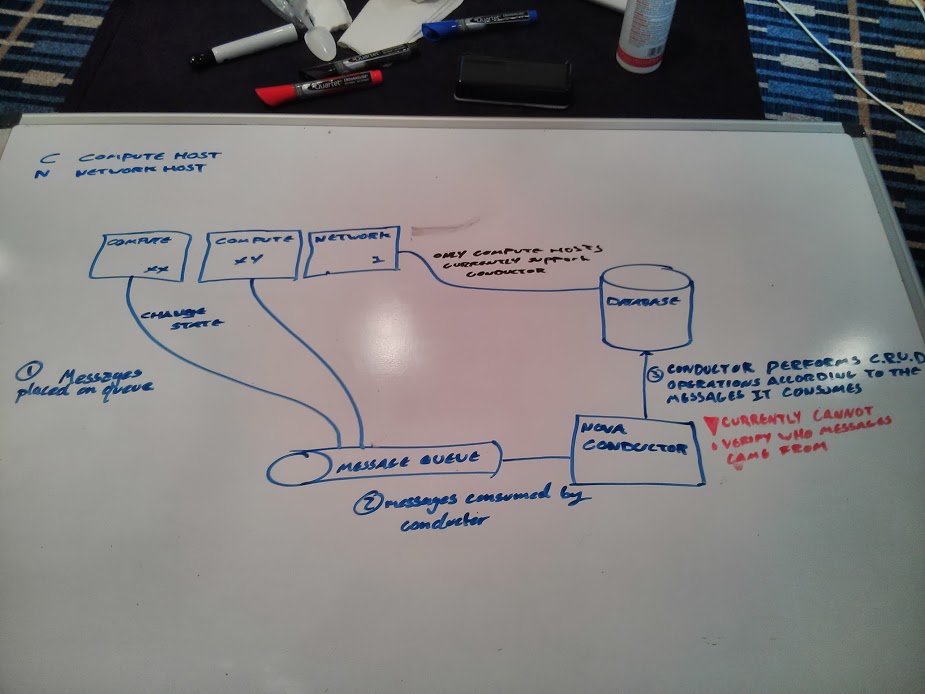 Quartet
Quartet
Quartet
C COMPUTE HOST
N NETWORK HOST
COMPUTE
XX
COMPUTE
XY
NETWORK
2
ONLY COMPUTE HOSTS
CURRENTLY SUPPORT
CONDUCTOR
DATABASE
CHANGE
STATE
1 Messages
placed on queue
3 CONDUCTOR PERFORMS C.R.U.D
OPERATIONS ACCORDING TO THE
MESSAGES IT CONSUMES
NOVA
CONDUCTOR
! CURRENTLY CANNOT
VERIFY WHO MESSAGES
CAME FROM
MESSAGE QUEUE
2 messages consumed by
conductor